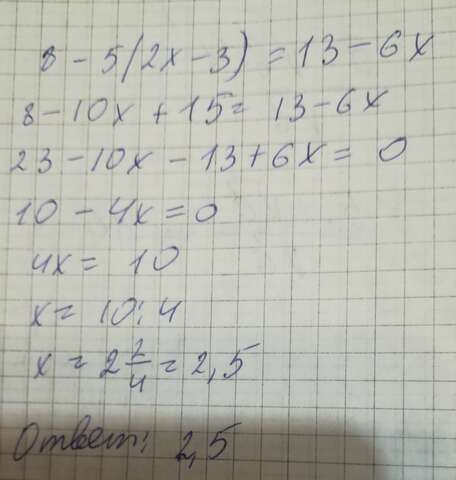 8 - 5(2x - 3) = 13 - 6x
8 - 10x + 15 = 13 - 6x
23 - 10x - 13 + 6x = 0
10 - 4x = 0
4x = 10
x = 10 : 4
x = 2 2/4 = 2,5
Ответ: 2,5